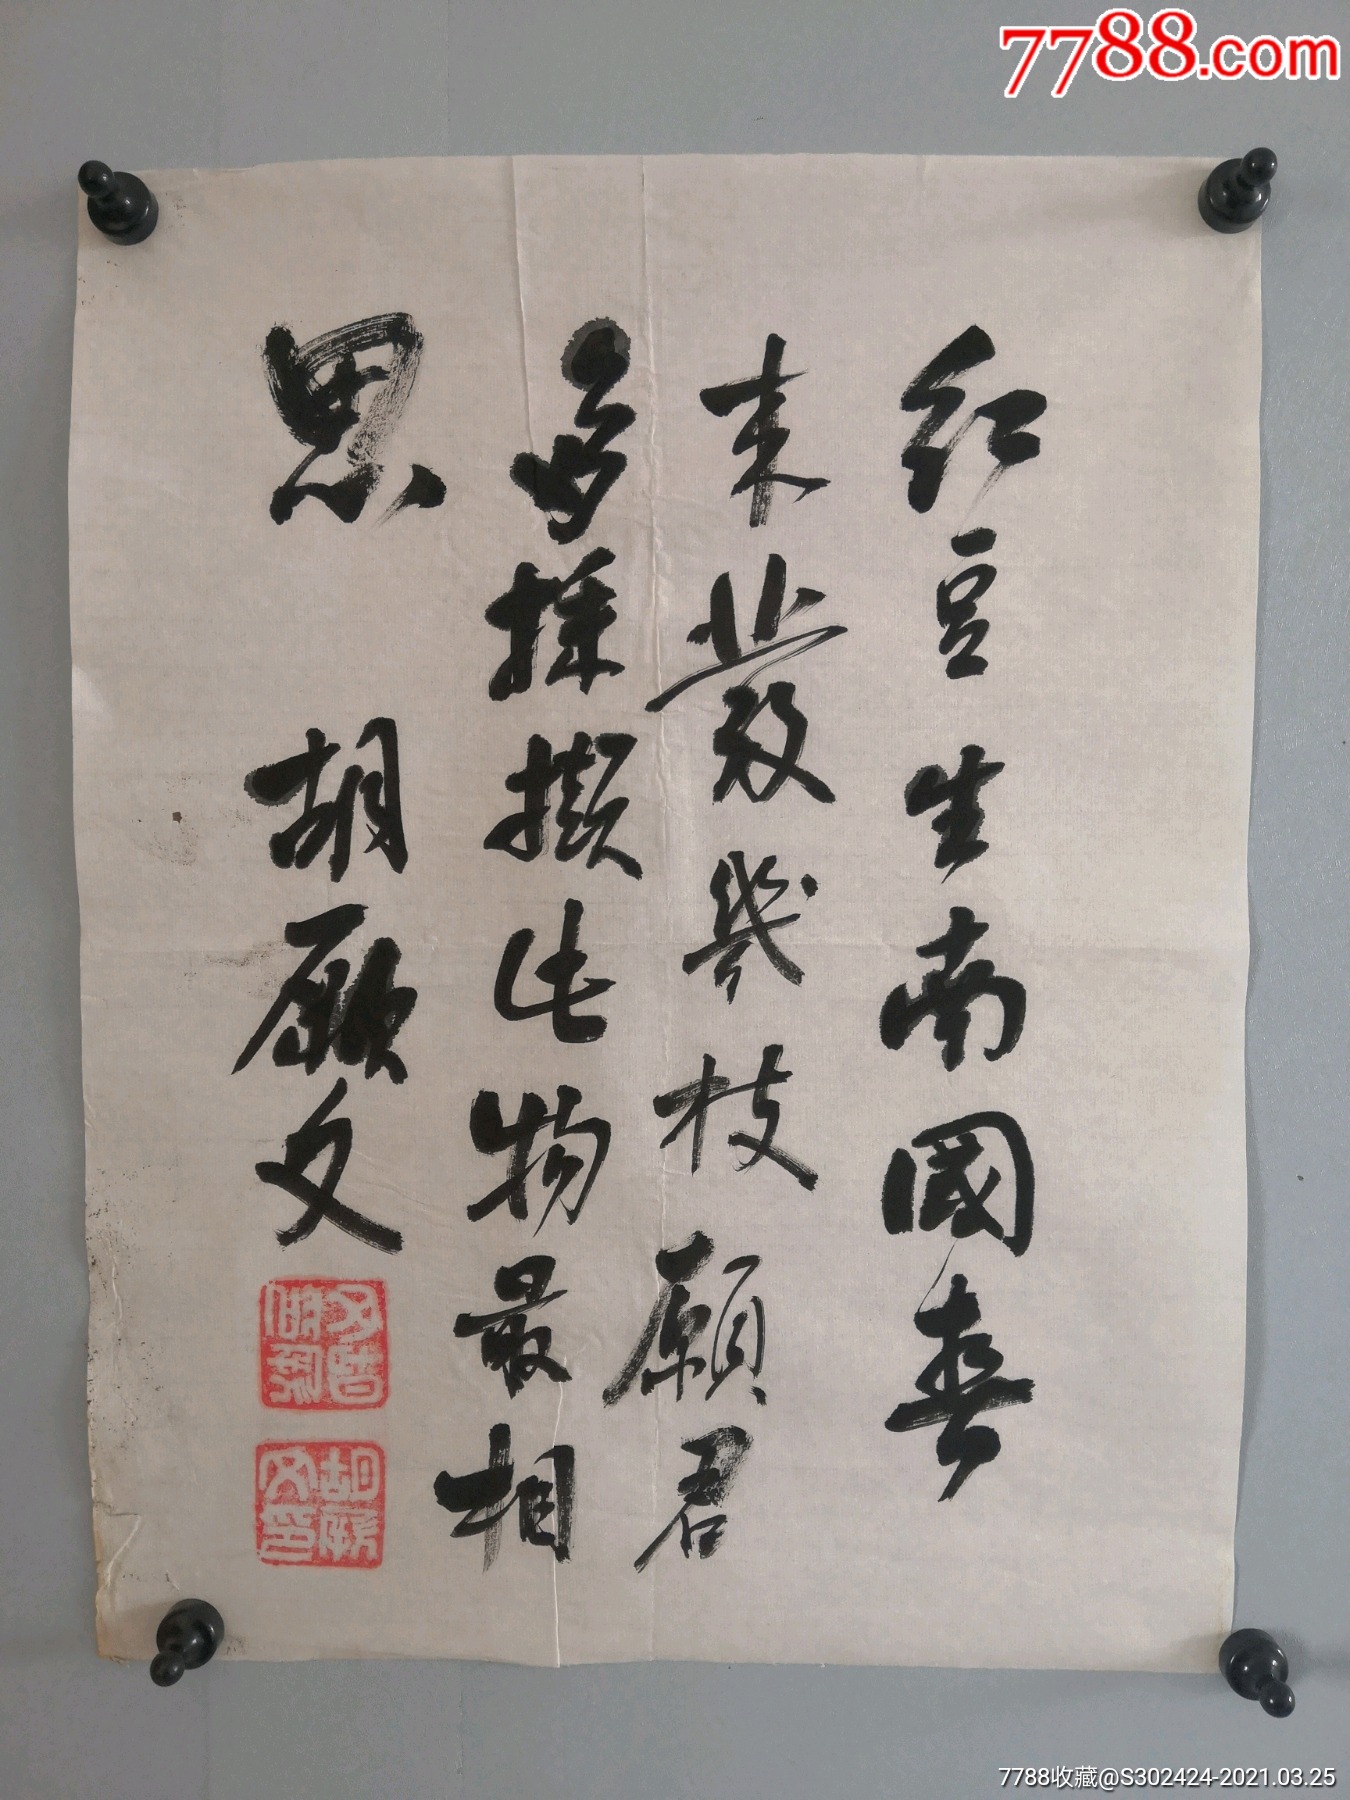 7788.com
红豆生南國春
来發幾枝願君
多採擷此物最相
思
胡厥文
胡厥文印
7788收藏@S302424-2021.03.25